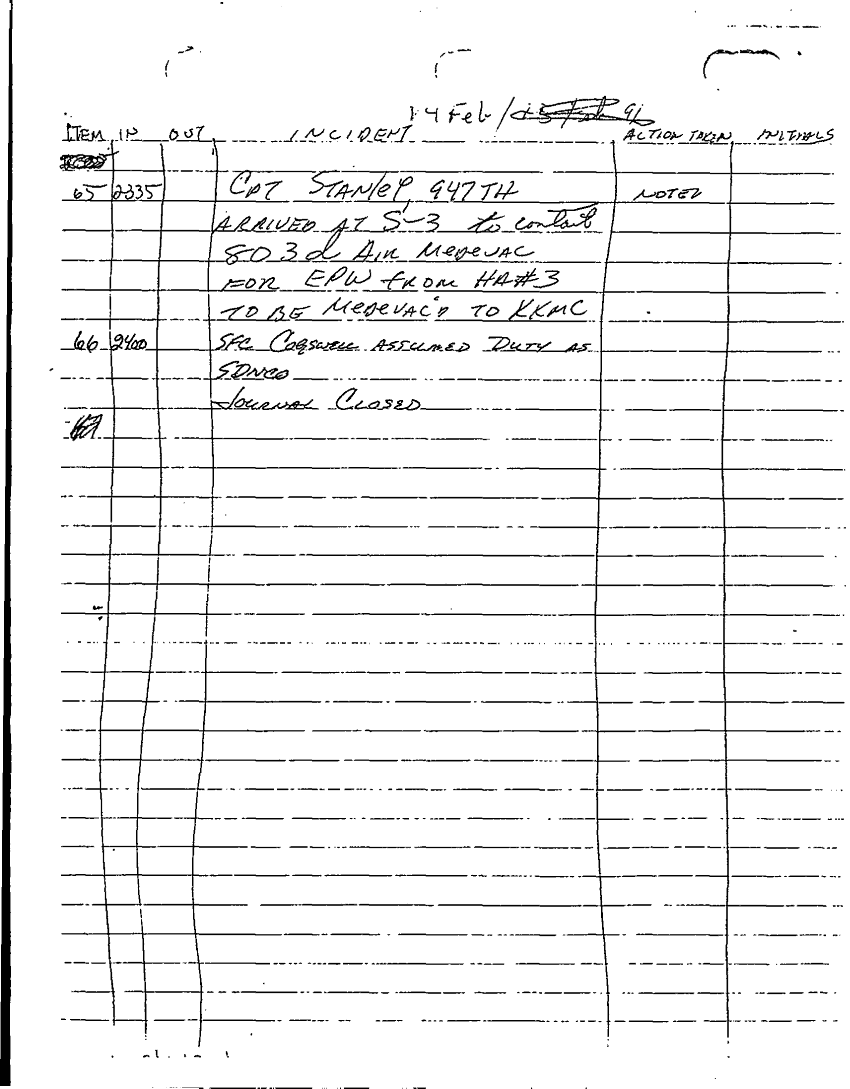 14 Feb / 91
ITEM IN OUT INCIDENT ACTION TAKEN INITIALS
65 2335 CPT STANLEY, 947TH NOTED
ARRIVED AT S-3 to contact
803d AIR MEDEVAC
FOR EPW FROM HA#3
TO BE MEDEVAC'D TO KKMC
66 2400 SFC COGSWELL ASSUMED DUTY AS
SDNCO
JOURNAL CLOSED